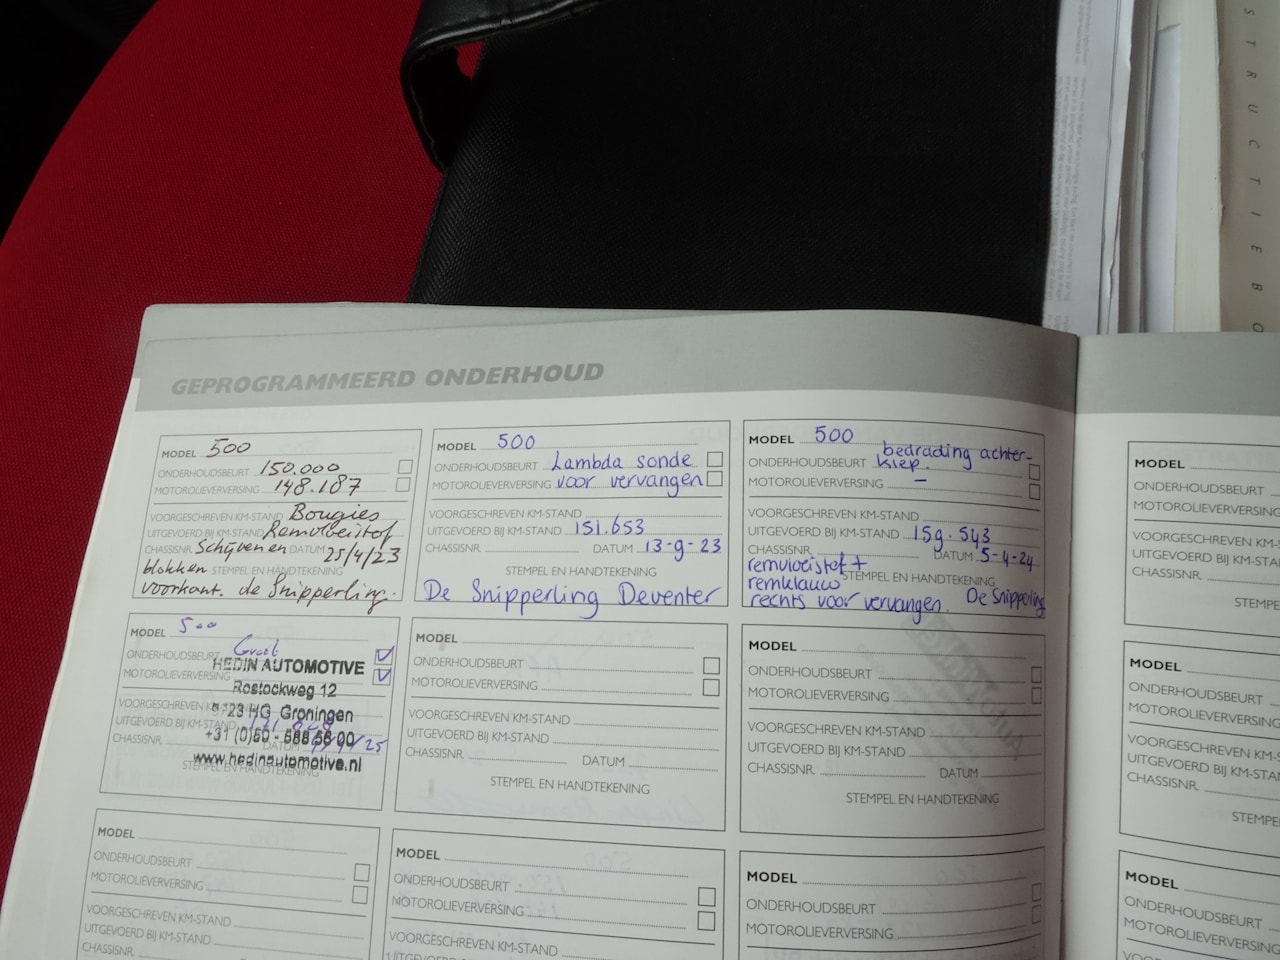 STRUCTIEBO
GEPROGRAMMEERD ONDERHOUD
MODEL 500
ONDERHOUDSBEURT 150.000
MOTOROLIEVERVERSING 148.187
VOORGESCHREVEN KM-STAND Bougies
UITGEVOERD BIJ KM-STAND Remvloeistof
CHASSISNR. Schijven en DATUM 25/4/23
blokken STEMPEL EN HANDTEKENING
voorkant. de Snipperling.
MODEL 500
ONDERHOUDSBEURT Lambda sonde
MOTOROLIEVERVERSING voor vervangen
VOORGESCHREVEN KM-STAND
UITGEVOERD BIJ KM-STAND 151.653
CHASSISNR. DATUM 13-9-23
STEMPEL EN HANDTEKENING
De Snipperling Deventer
MODEL 500
bedrading achter-
ONDERHOUDSBEURT klep.
MOTOROLIEVERVERSING –
VOORGESCHREVEN KM-STAND
UITGEVOERD BIJ KM-STAND 159.543
CHASSISNR. DATUM 5-4-24
remvloeistof +
remklauw STEMPEL EN HANDTEKENING
rechts voor vervangen. De Snipperling
MODEL
ONDERHOUDSBEURT
MOTOROLIEVERVERSING
VOORGESCHREVEN KM-S
UITGEVOERD BIJ KM-ST
CHASSISNR.
STEMPE
MODEL 500
ONDERHOUDSBEURT Groot
HEDIN AUTOMOTIVE
MOTOROLIEVERVERSING
Rostockweg 12
VOORGESCHREVEN KM-STAND
23 HG Groningen
UITGEVOERD BIJ KM-STAND
+31 (0)50 - 588 56 00
CHASSISNR. DATUM 25
www.hedinautomotive.nl
STEMPEL EN HANDTEKENING
MODEL
ONDERHOUDSBEURT
MOTOROLIEVERVERSING
VOORGESCHREVEN KM-STAND
UITGEVOERD BIJ KM-STAND
CHASSISNR. DATUM
STEMPEL EN HANDTEKENING
MODEL
ONDERHOUDSBEURT
MOTOROLIEVERVERSING
VOORGESCHREVEN KM-STAND
UITGEVOERD BIJ KM-STAND
CHASSISNR. DATUM
STEMPEL EN HANDTEKENING
MODEL
ONDERHOUDSBEURT
MOTOROLIEVERVERSING
VOORGESCHREVEN KM-S
UITGEVOERD BIJ KM-STA
CHASSISNR.
STEMPE
MODEL
ONDERHOUDSBEURT
MOTOROLIEVERVERSING
VOORGESCHREVEN KM-STAND
UITGEVOERD BIJ KM-STAND
CHASSISNR.
MODEL
ONDERHOUDSBEURT
MOTOROLIEVERVERSING
VOORGESCHREVEN KM-STAND
UITGEVOERD BIJ KM-STAND
MODEL
ONDERHOUDSBEURT
MOTOROLIEVERVERSING
MODEL
ONDERHOUDSBEURT
MOTOROLIEVERVERSING